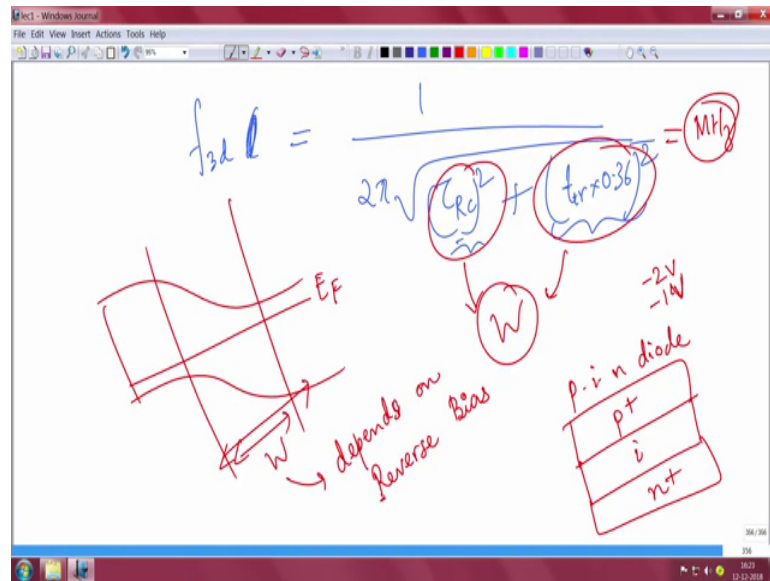 lec1 - Windows Journal
File Edit View Insert Actions Tools Help
96%
f3dB = 1 / 2π √((τRC)² + (ttr×0.36)²) = MHz
EF
W
W
depends on
Reverse Bias
-2V
p-i-n diode
p+
i
n+
366 / 366
356
16:23
12-12-2018